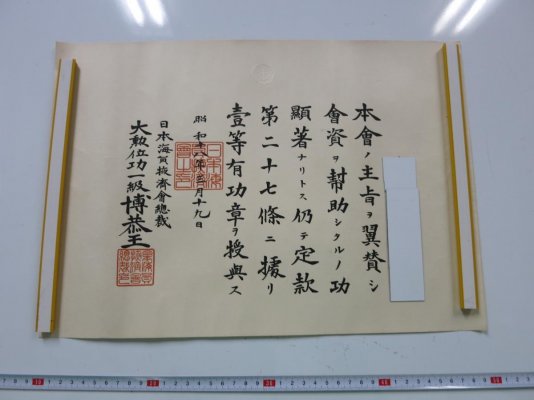 本會ノ主旨ヲ翼賛シ
會資ヲ幇助シタルノ功
顯著ナリトス仍テ定款
第二十七條ニ據リ
壹等有功章ヲ授與ス
昭和十八年三月十九日
日本海員掖濟會總裁
大勲位功一級博恭王